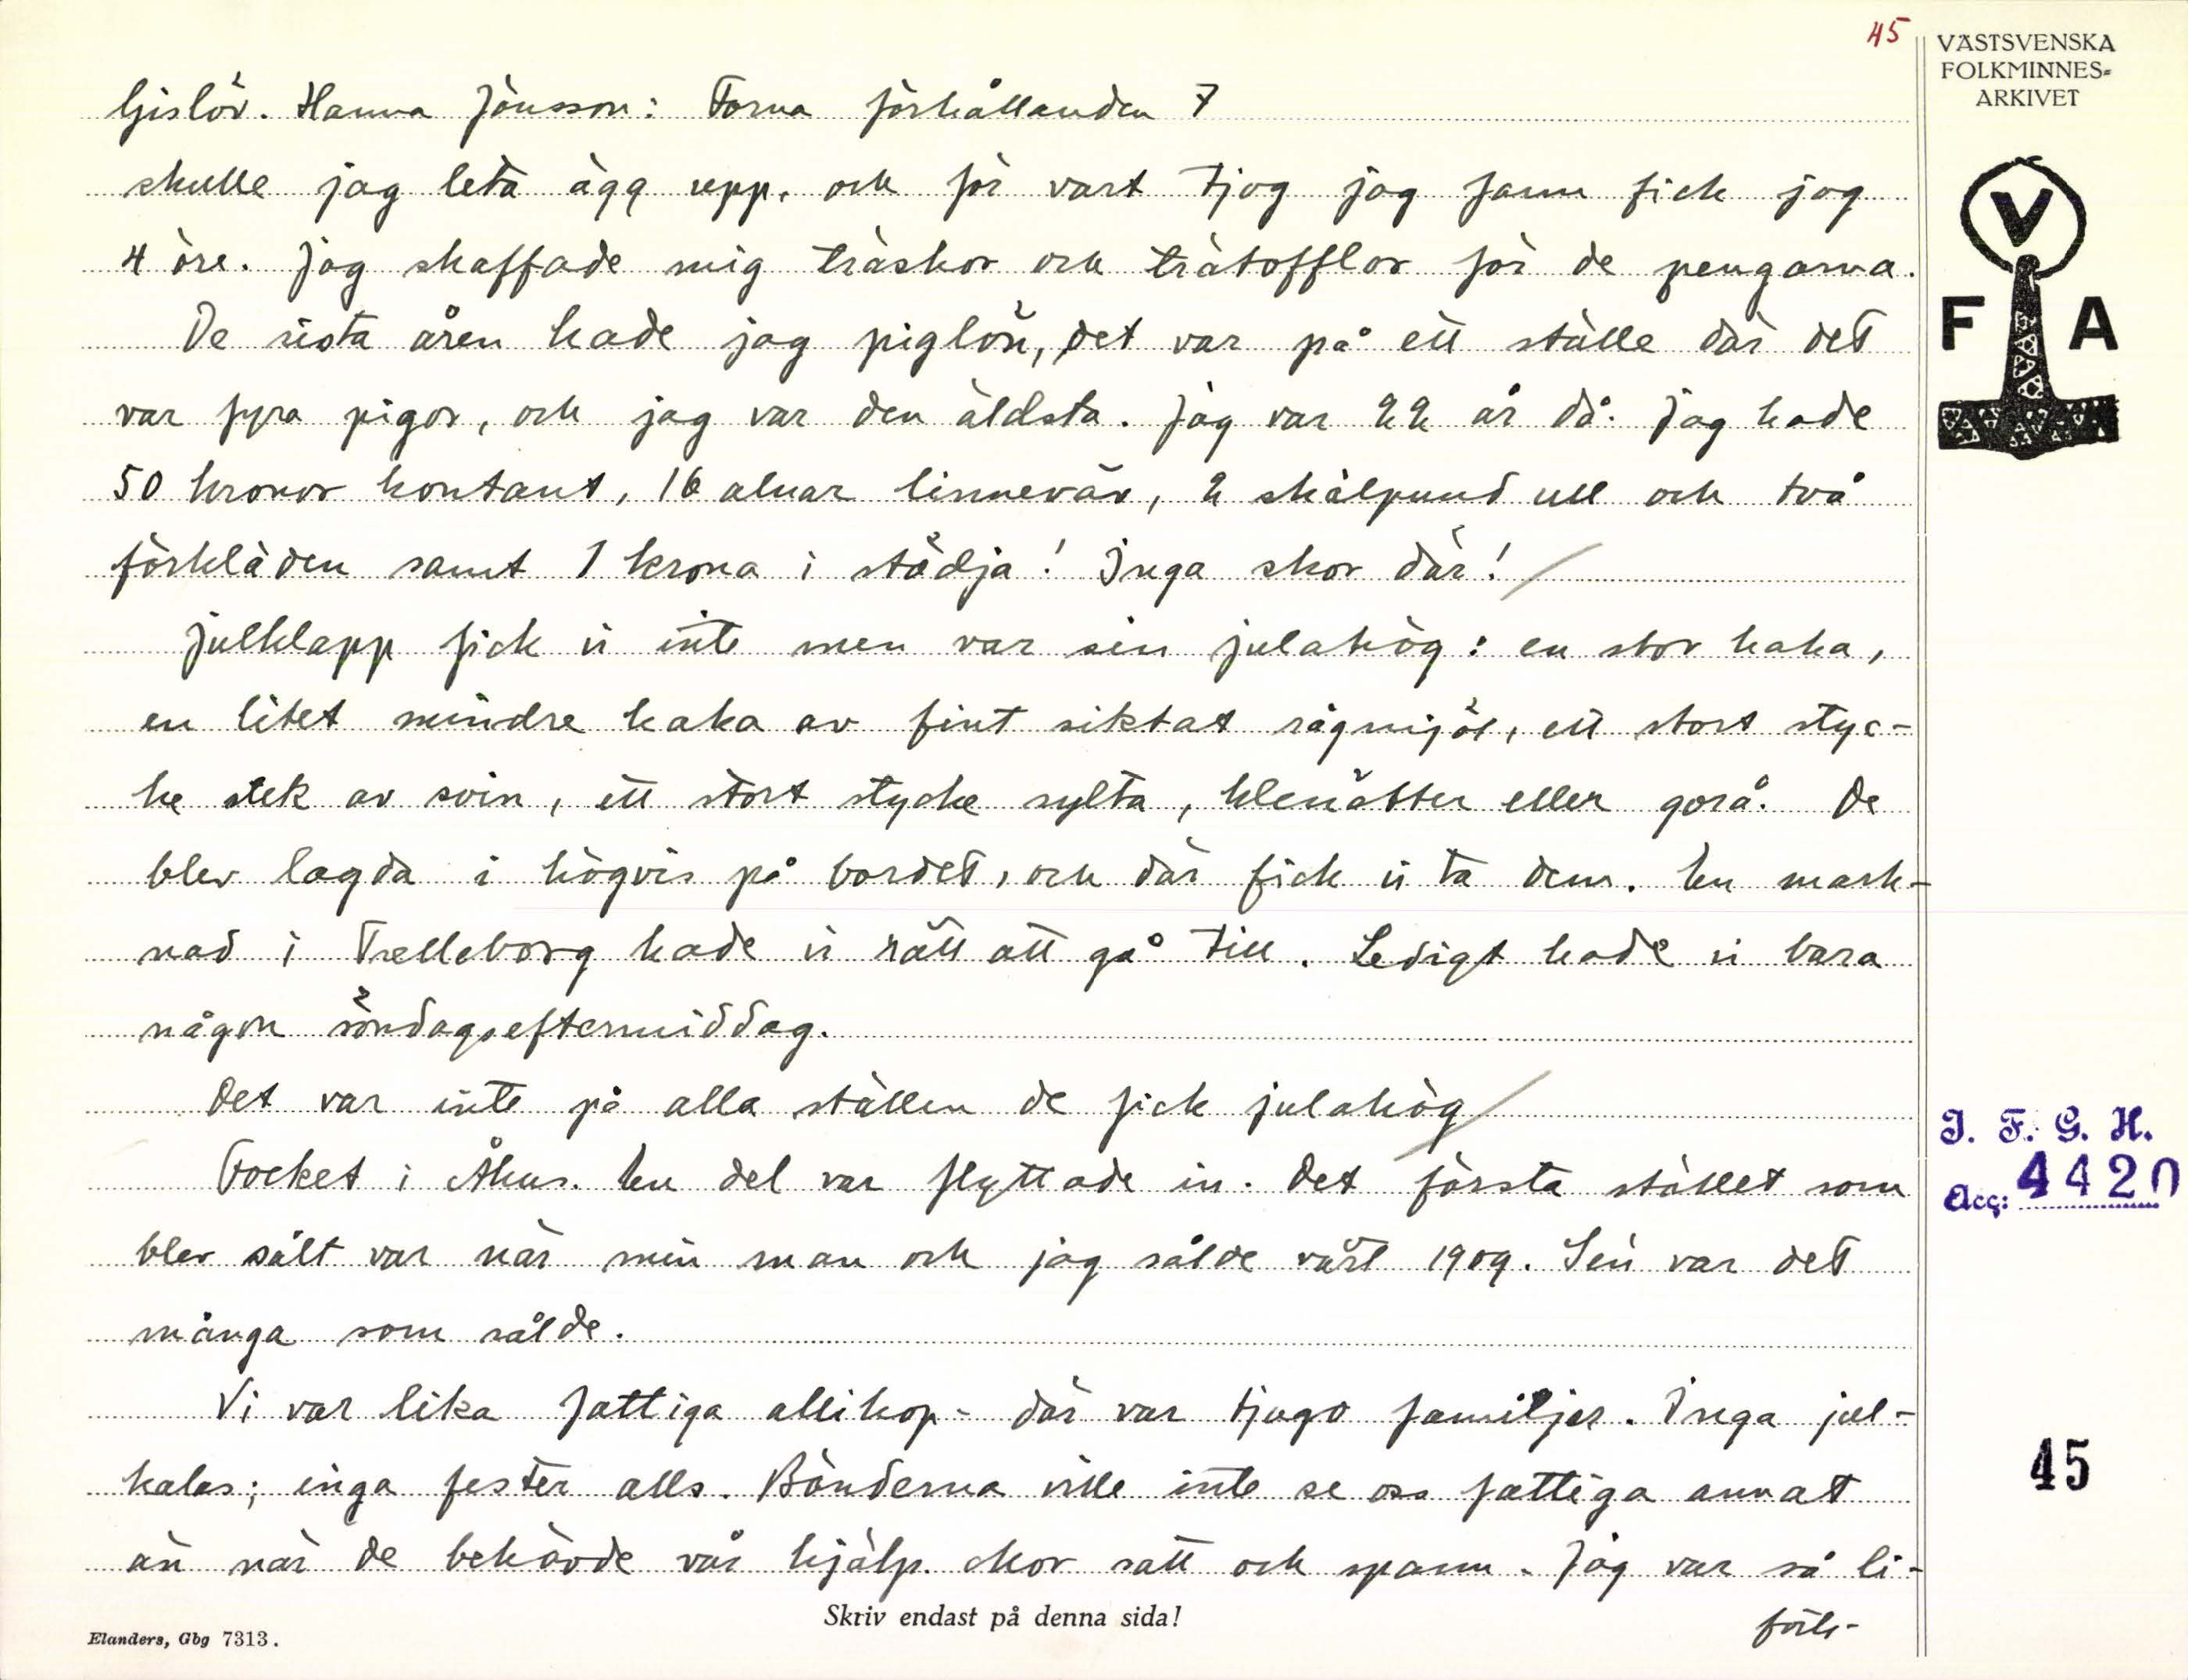 45
VÄSTSVENSKA
FOLKMINNES-
ARKIVET
V
F A
Gislöv. Hanna Jönsson: Forna förhållanden 7
skulle jag leta ägg upp, och för vart tjog jag fann fick jag
4 öre. Jag skaffade mig träskor och trätofflor för de pengarna.
De sista åren hade jag piglön, det var på ett ställe där det
var fyra pigor, och jag var den äldsta. Jag var 22 år då. Jag hade
50 kronor kontant, 16 alnar linneväv, 2 skålpund ull och två
förkläden samt 1 krona i städja! Inga skor där!
Julklapp fick vi inte men var sin julahög: en stor kaka,
en litet mindre kaka av fint siktat rågmjöl, ett stort styc-
ke stek av svin, ett stort stycke sylta, klenätter eller gorå. De
blev lagda i högvis på bordet, och där fick vi ta dem. En mark-
nad i Trelleborg hade vi rätt att gå till. Ledigt hade vi bara
någon söndagseftermiddag.
Det var inte på alla ställen de fick julahög
Focket i Åhus. En del var flyttade in. Det första stället som
blev sålt var när min man och jag sålde vårt 1909. Sen var det
många som sålde.
Vi var lika fattiga allihop - där var tjugo familjer. Inga jul-
kalas; inga fester alls. Bönderna ville inte se oss fattiga annat
än när de behövde vår hjälp. Mor satt och spann. Jag var så li-
forts-
J. F. G. H.
Acc: 4420
45
Skriv endast på denna sida!
Elanders, Gbg 7313.